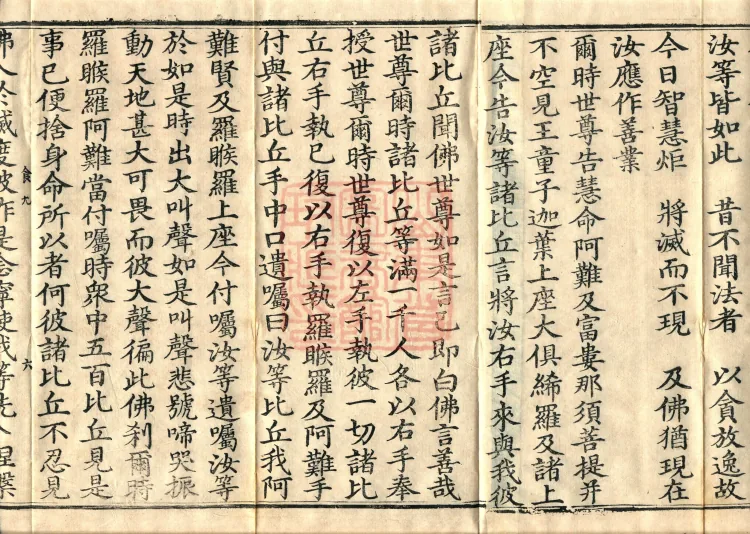 汝等皆如此　昔不聞法者　以貪放逸故
今日智慧炬　將滅而不現　及佛猶現在
汝應作善業
爾時世尊告慧命阿難及富婁那須菩提并
不空見王童子迦葉上座大俱絺羅及諸上
座今告汝等諸比丘言將汝右手來與我彼
諸比丘聞佛世尊如是言已即白佛言善哉
世尊爾時諸比丘等滿一千人各以右手奉
授世尊爾時世尊復以左手執彼一切諸比
丘右手執已復以右手執羅睺羅及阿難手
付與諸比丘手中口遺囑曰汝等比丘我阿
難賢及羅睺羅上座今付囑汝等遺囑汝等
於如是時出大叫聲如是叫聲悲號啼哭振
動天地甚大可畏而彼大聲徧此佛剎爾時
羅睺羅阿難當付囑時眾中五百比丘見是
事已便捨身命所以者何彼諸比丘不忍見
食九　六
佛入於滅度彼作是念寧使我等先入涅槃